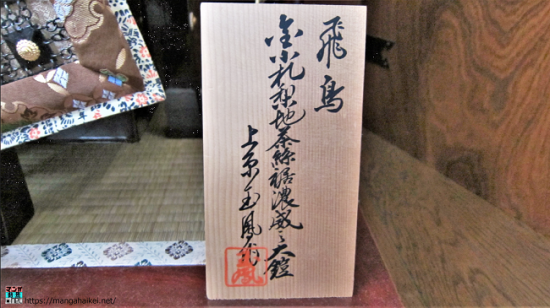 飛鳥
金小札梨地茶絲裾濃威之大鎧
上京玉鳳作
https://mangahaikei.net/